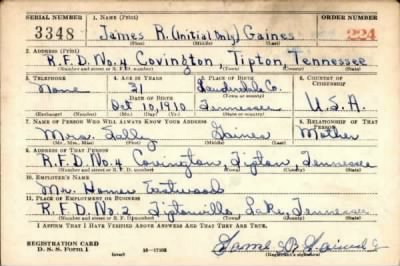 SERIAL NUMBER 1. NAME (Print) ORDER NUMBER
3348 James R. (Initial Only) Gaines 224
(First) (Middle) (Last)
2. ADDRESS (Print)
R.F.D. No. 4 Covington, Tipton, Tennessee
(Number and street or R. F. D. number) (Town) (County) (State)
3. TELEPHONE 4. AGE IN YEARS 5. PLACE OF BIRTH 6. COUNTRY OF CITIZENSHIP
None 31 Lauderdale Co.
DATE OF BIRTH (Town or county)
Oct 10, 1910 Tennessee U.S.A.
(Exchange) (Number) (Mo.) (Day) (Yr.) (State or country)
7. NAME OF PERSON WHO WILL ALWAYS KNOW YOUR ADDRESS 8. RELATIONSHIP OF THAT PERSON
Mrs. Sally Gaines Mother
(Mr., Mrs., Miss) (First) (Middle) (Last)
9. ADDRESS OF THAT PERSON
R.F.D. No. 4 Covington, Tipton, Tennessee
(Number and street or R. F. D. number) (Town) (County) (State)
10. EMPLOYER'S NAME
Mr. Homer
11. PLACE OF EMPLOYMENT OR BUSINESS
R.F.D. No. 2 Tiptonville Lake, Tennessee
(Number and street or R. F. D. number) (Town) (County) (State)
I AFFIRM THAT I HAVE VERIFIED ABOVE ANSWERS AND THAT THEY ARE TRUE.
REGISTRATION CARD
D. S. S. Form 1 (over) James R. Gaines
(Registrant's signature)